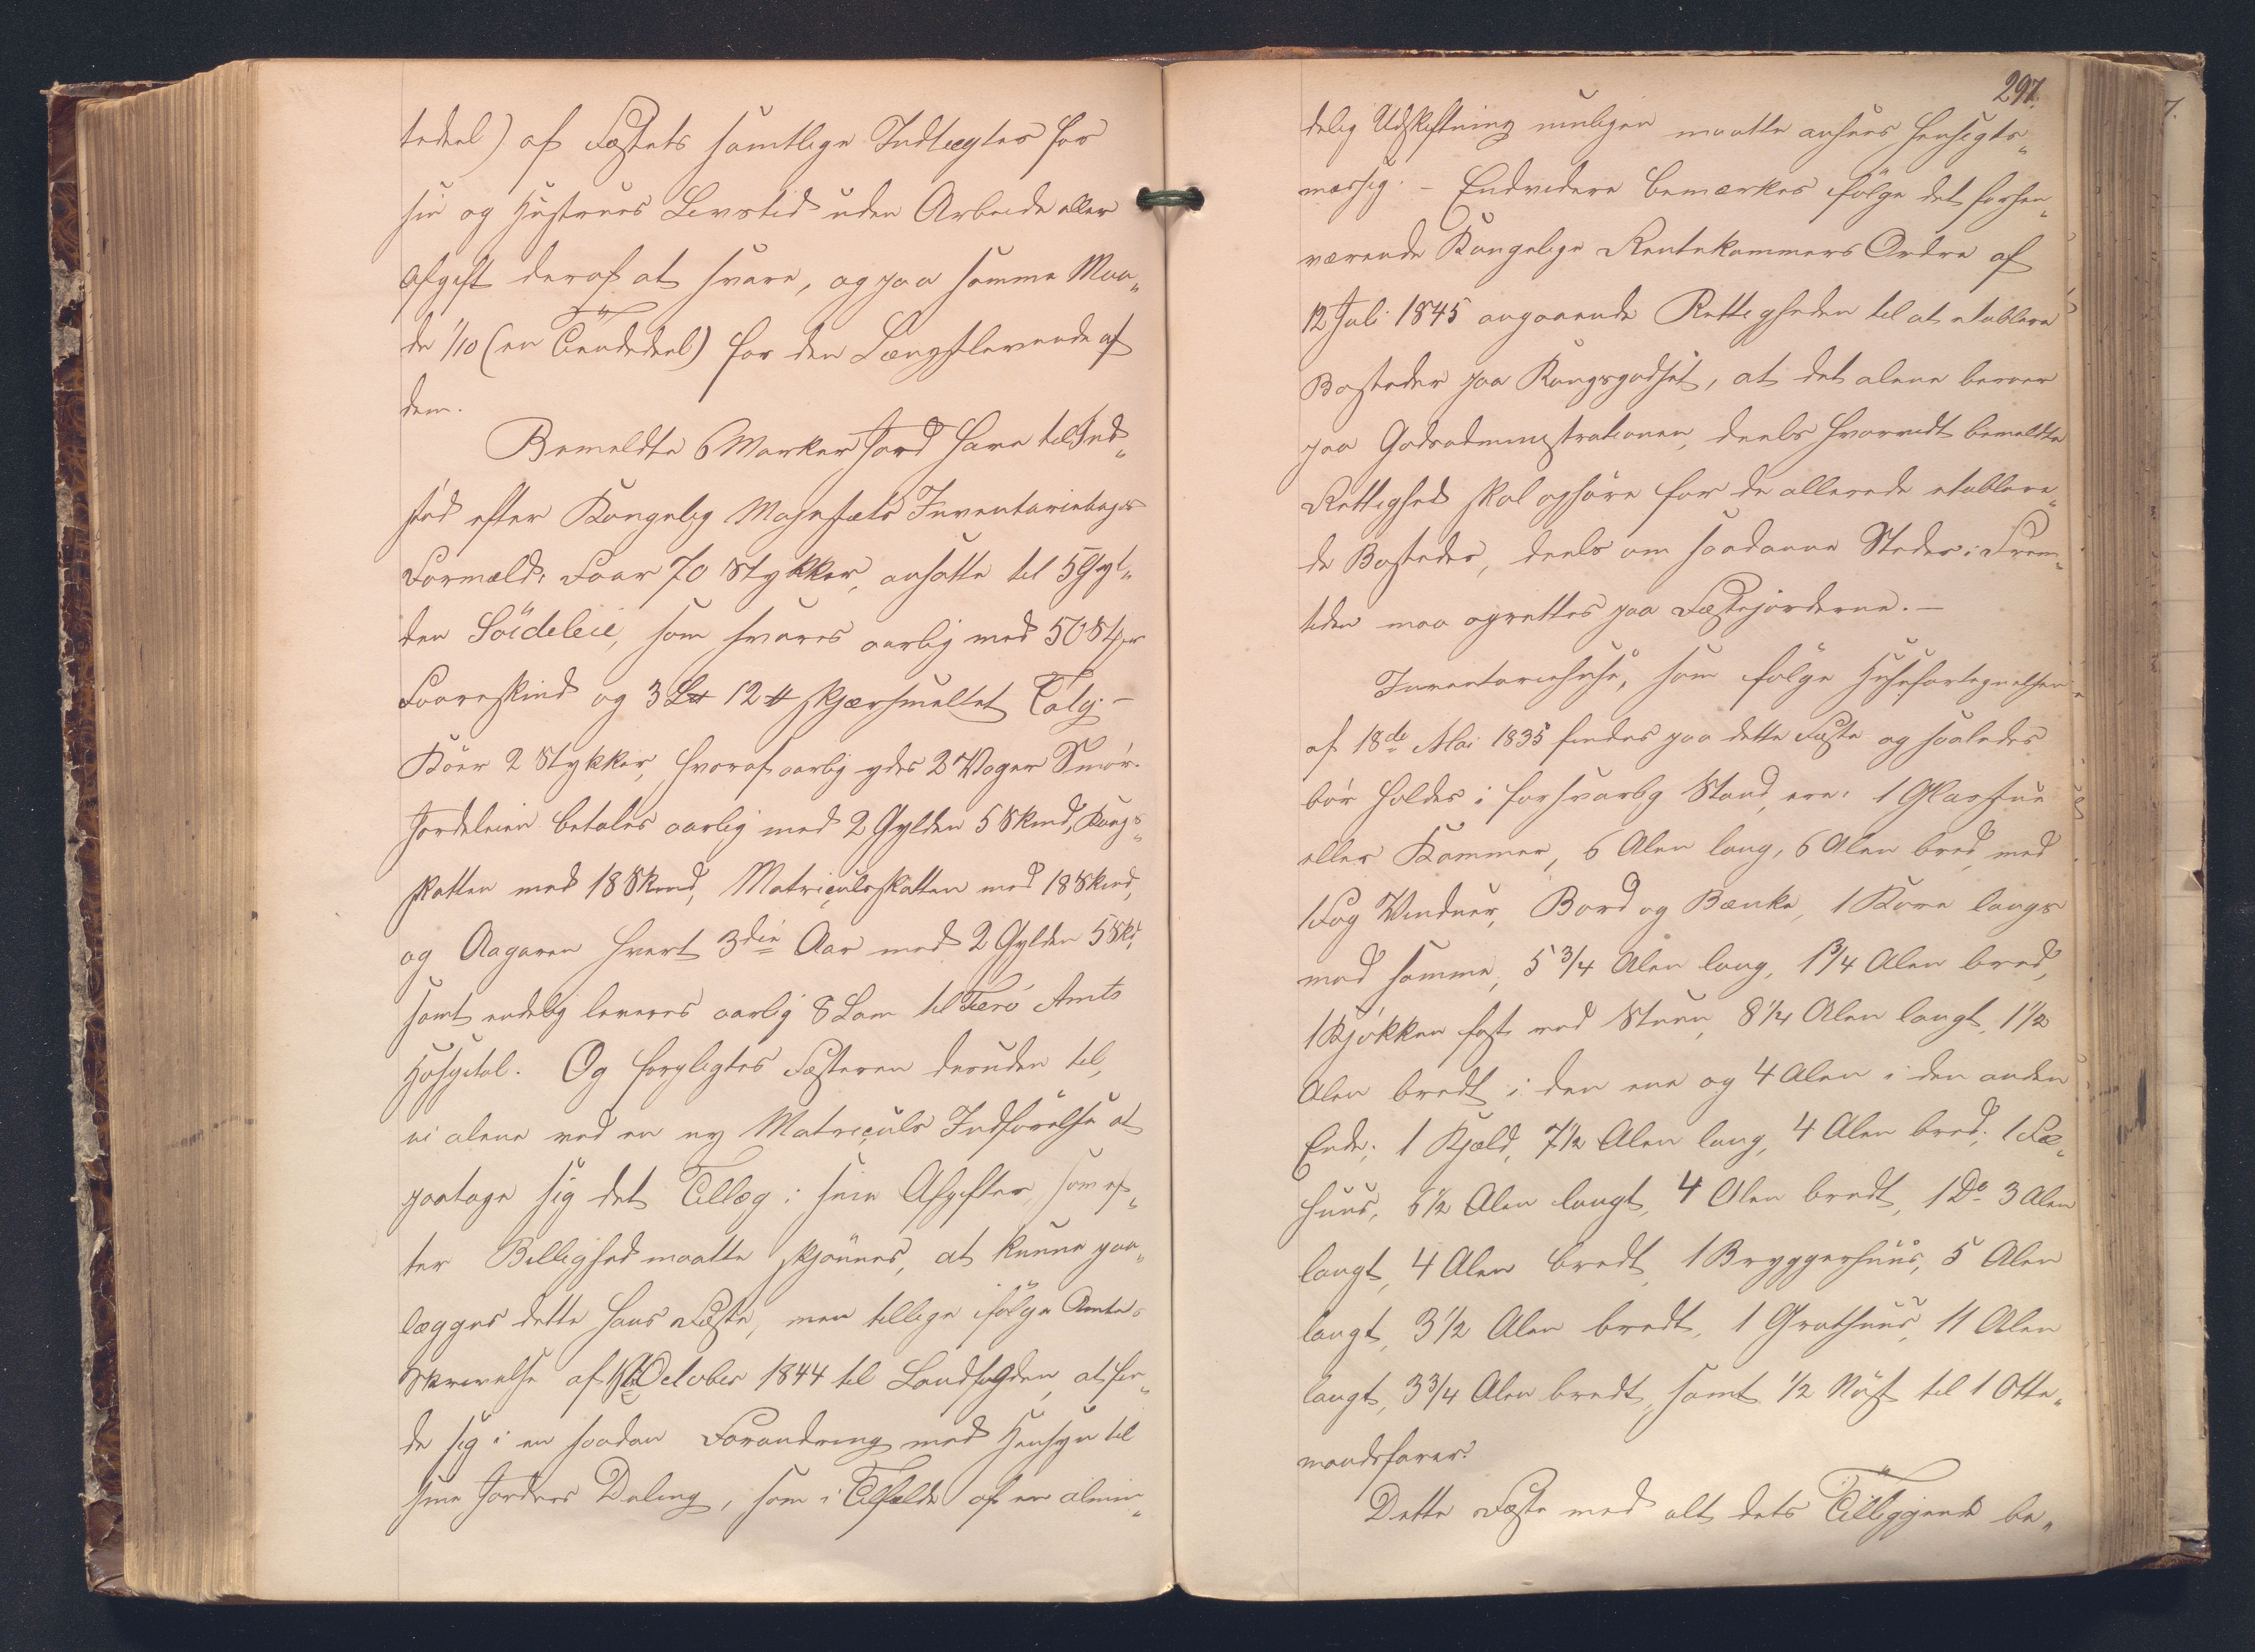 tedeel) af Fæstets samtlige Indtægter for
sin og Hustrues Levetid uden Arbeide eller
Afgift deraf at svare, og paa samme Maa„
de 1/10 (en Tiendedeel) for den Længstlevende af
dem.
Bemeldte 6 Marker Jord have til Ind„
stød efter Kongelig Majestæts Inventariebogs
Formæld: Faar 70 Stykker, ansatte til 5 Gyl„
den Söideleie, som svares aarlig med 50 Stkr
Faareskind og 3 L℔ 12 ℔ skjærsmeltet Talg. –
Köer 2 Stykker, hvoraf aarlig ydes 2 Voger Smör.
Jordeleien betales aarlig med 2 Gylden 5 Skind, Kongs„
skatten med 18 Skind, Matriculskatten med 18 Skind,
og Aagaven hvert 3die Aar med 2 Gylden 5 Skd,
samt endelig leveres aarlig 8 Lam til Færö Amts
Hospital. Og forpligtes Fæsteren desuden til,
ei alene ved en ny Matriculs Indförelse at
paatage sig det Tillæg i sine Afgifter, som ef„
ter Billighed maatte skjönnes, at kunne paa„
lægges dette hans Fæste, men tillige ifölge Amtets
Skrivelse af October 1844 til Landfogden, at fin„
de sig i en saadan Forandring med Hensyn til
sine Jorders Deling, som i Tilfælde af en almin„
297.
delig Udskiftning muligen maatte ansees hensigts„
mæssig. – Endvidere bemærkes ifölge det forhen„
værende Kongelige Rentekammers Ordre af
12 Juli 1845 angaaende Rettigheden til at etablere
Bosteder paa Kongsgodset, at det alene beroer
paa Godsadministrationen, deels hvorvidt bemeldte
Rettighed skal ophöre for de allerede etablere„
de Bosteder, deels om saadanne Steder i Frem„
tiden maa oprettes paa Fæstejorderne. –
Inventariehuse, som fölge Huusfortegnelsen
af 18de Mai 1835 findes paa dette Fæste og saaledes
bör holdes i forsvarlig Stand, ere: 1 Glasstue
eller Kammer, 6 Alen lang, 6 Alen bred, med
1 Fag Vinduer, Bord og Bænke, 1 Kove langs
med samme, 5 3/4 Alen lang, 1 3/4 Alen bred,
1 Kjökken fast ved Stuen, 8 1/4 Alen langt, 1 1/2
Alen bredt i den ene og 4 Alen i den anden
Ende; 1 Kjæld, 7 1/2 Alen lang, 4 Alen bred; 1 Fæ„
huus, 6 1/2 Alen langt, 4 Alen bredt, 1 Do 3 Alen
langt, 4 Alen bredt, 1 Bryggerhuus, 5 Alen
langt, 3 1/2 Alen bredt, 1 Grothuus, 11 Alen
langt, 3 3/4 Alen bredt, samt 1/2 Nöst til 1 Otte„
mandsfarer.
Dette Fæste med alt dets Tilliggende be„